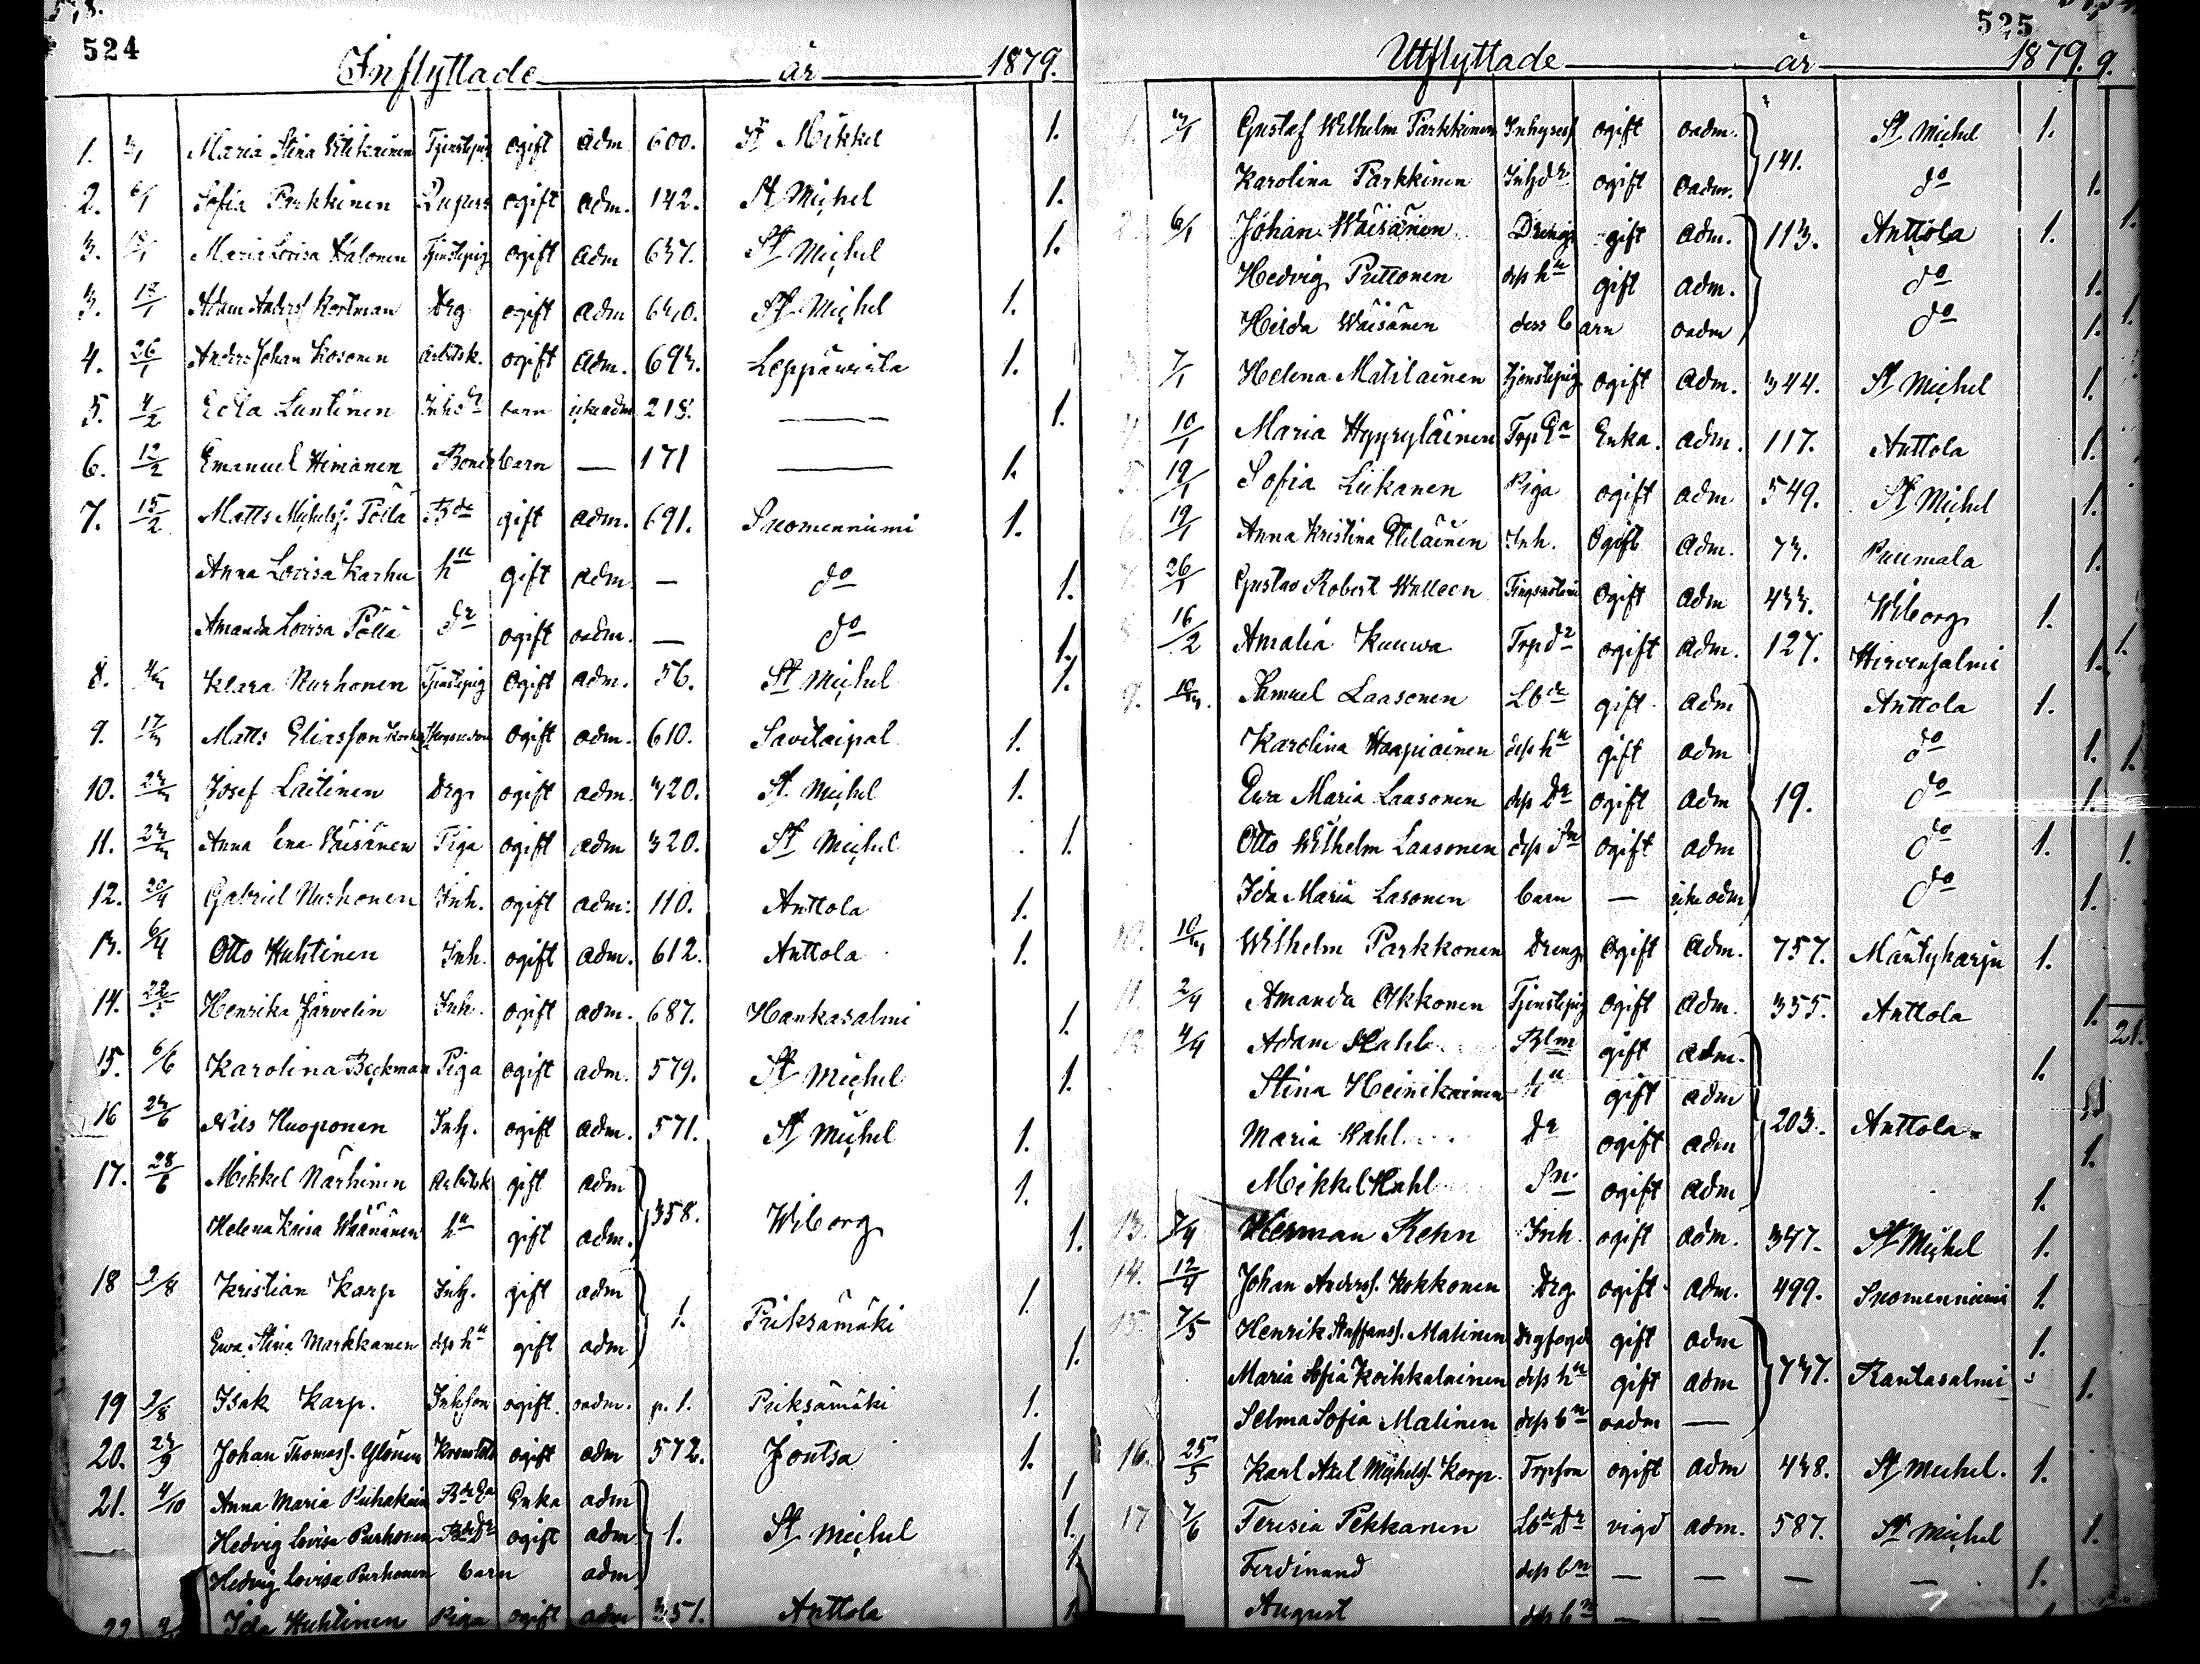 524
Inflyttade år 1879.
1. Maria Stina ogift adm 600. St Mikkel 1.
2. 6/1 Sofia Parkkinen ogift adm. 142. St Michel 1.
3. Maria Lovisa Tjenstepig ogift adm 637. St Michel 1.
3. Adam Anderss Kortman Drg ogift adm 640. St Michel 1.
4. 26/1 Anders Johan Kosonen Arbetsk. ogift adm. 693. Leppävirta 1.
5. 4/2 Edla Luntinen Inhdr barn icke adm 218. — 1.
6. 12/2 Emanuel Himanen Bondebarn — 171 — 1.
7. 15/2 Matts Michelss. Pöllä Bde gift adm. 691. Suomenniemi 1.
Anna Lovisa Karhu hu gift adm — do 1.
Amanda Lovisa Pöllä dr ogift oadm. — do 1.
8. 4/3 Klara Nurhonen Tjenstepig ogift adm. 56. St Michel 1.
9. 17/3 Matts Eliasson ogift adm. 610. Savitaipal 1.
10. 23/3 Josef Laitinen Drg ogift adm. 320. St Michel 1.
11. 23/3 Anna Lena Väisänen Piga ogift adm 320. St Michel 1.
12. 20/4 Gabriel Nurhonen Inh. ogift adm. 110. Anttola 1.
13. 6/4 Otto Huhtinen Inh. ogift adm. 612. Anttola 1.
14. 22/5 Henrika Järvelin Inh. ogift adm. 687. Hankasalmi 1.
15. 6/6 Karolina Beckman Piga ogift adm. 579. St Michel 1.
16 23/6 Nils Huoponen Inh. ogift adm. 571. St Michel 1.
17. 28/6 Mikkel Närhinen Arbetsk gift adm 358. Wiborg 1.
Helena Kaisa Wäänänen hu gift adm. 1.
18 2/8 Kristian Karp Inh. gift adm 1. Pieksämäki 1.
Ewa Stina Markkanen dess hu gift adm 1.
19 2/8 Isak Karp. Inhson ogift oadm. p. 1. Pieksämäki 1.
20. 23/9 Johan Thomass. Ylönen ogift adm 572. Joutsa 1.
21. 4/10 Anna Maria Enka adm 1. St Michel 1
Hedvig Lovisa Purhonen ogift adm 1.
Hedvig Lovisa Purhonen barn adm 1.
22. Ida Huhtinen Piga ogift adm 351. Anttola 1.
525
Utflyttade år 1879.
1. Gustaf Wilhelm Parkkinen Inhyress ogift oadm. 141. St Michel 1.
Karolina Parkkinen Inhdr ogift oadm. do 1.
2. 6/1 Johan Wäisänen Dreng gift adm. 113. Anttola 1.
Hedvig Puttonen dess hu gift adm. do 1.
Hilda Wäisänen dess barn oadm do 1.
3. 7/1 Helena Matilainen Tjenstepig ogift adm. 344. St Michel 1.
4. 10/1 Maria Hyyryläinen Torp Ea Enka. adm. 117. Anttola 1.
5. 19/1 Sofia Liikanen Piga ogift adm 549. St Michel 1.
6. 19/1 Anna Kristina Eteläinen Inh. ogift adm. 73. Puumala 1.
7. 26/1 Gustav Robert Walleen ogift adm 433. Wiborg 1.
8. 16/2 Amalia Kuuwa Torpdr ogift adm. 127. Hirvensalmi 1.
9. Samuel Laasonen Lbde gift adm 19. Anttola 1.
Karolina Haapiainen dess hu gift adm do 1.
Ewa Maria Laasonen dess Dr ogift adm do 1.
Otto Wilhelm Laasonen dess Sn ogift adm do 1.
Ida Maria Lasonen barn — icke adm do 1.
10. 10/3 Wilhelm Parkkonen Dreng ogift adm. 757. Mäntyharju 1.
11. 2/4 Amanda Okkonen Tjenstepig ogift adm. 355. Anttola 1.
12. 4/4 Adam Stahl. gift adm. 203. Anttola. 1.
Stina Heinikainen hu gift adm
Maria Stahl Dr ogift adm 1.
Mikkel Stahl Sn. ogift adm 1.
13. 7/4 Herman Rehn Inh. ogift adm. 347. St Michel 1.
14. 12/4 Johan Anderss. Kokkonen Drg ogift adm. 499. Suomenniemi 1.
15. 7/5 Henrik Staffanss. Malinen Drgfogd gift adm 737. Rantasalmi 1.
Maria Sofia Koikkalainen dess hu gift adm 1.
Selma Sofia Malinen dess bn oadm —
16. 25/5 Karl Axel Michelss. Korp. Torpson ogift adm 438. St Michel. 1.
17 7/6 Teresia Pekkanen Lbde Dr vigd adm. 587. St Michel 1.
Ferdinand dess bn — — — — 1.
August dess bn — —